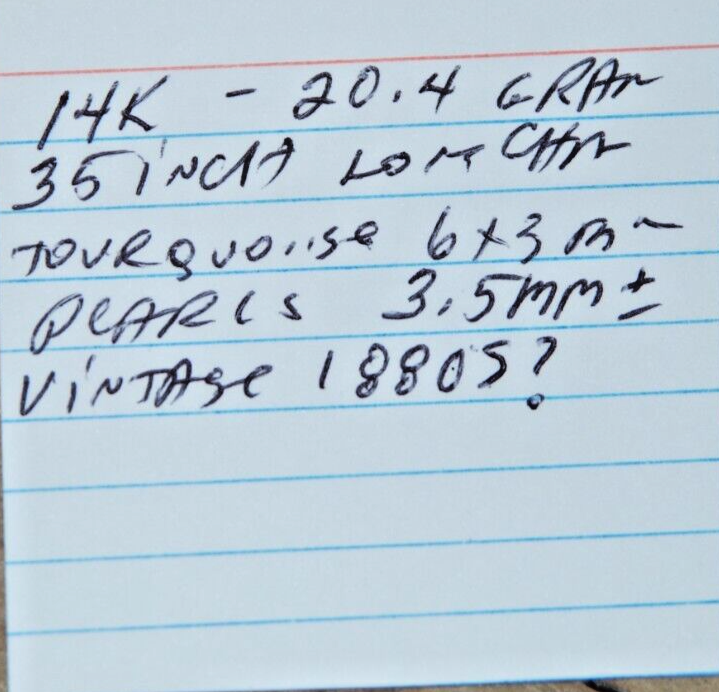 14K - 20.4 GRAM
35 INCH LONG CHAIN
TOURQUOISE 6x3 mm
PEARLS 3.5mm ±
VINTAGE 1880S?